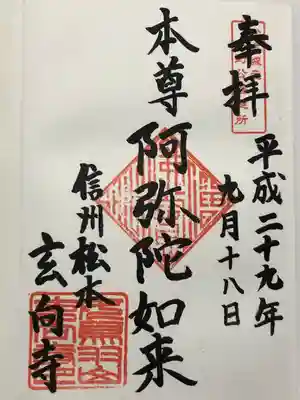 奉拝
平成二十九年
九月十八日
本尊
阿弥陀如来
信州松本
玄向寺